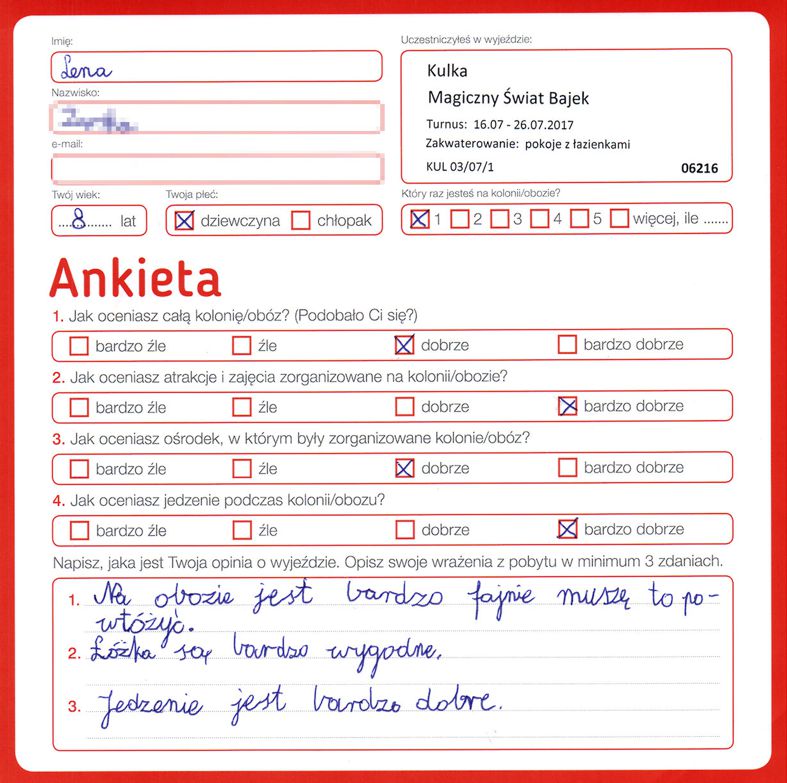 Imię:
Lena
Nazwisko:
e-mail:
Twój wiek:
....8....... lat
Twoja płeć:
dziewczyna chłopak
Uczestniczyłeś w wyjeździe:
Kulka
Magiczny Świat Bajek
Turnus: 16.07 - 26.07.2017
Zakwaterowanie: pokoje z łazienkami
KUL 03/07/1 06216
Który raz jesteś na kolonii/obozie?
1 2 3 4 5 więcej, ile .......
Ankieta
1. Jak oceniasz całą kolonię/obóz? (Podobało Ci się?)
bardzo źle źle dobrze bardzo dobrze
2. Jak oceniasz atrakcje i zajęcia zorganizowane na kolonii/obozie?
bardzo źle źle dobrze bardzo dobrze
3. Jak oceniasz ośrodek, w którym były zorganizowane kolonie/obóz?
bardzo źle źle dobrze bardzo dobrze
4. Jak oceniasz jedzenie podczas kolonii/obozu?
bardzo źle źle dobrze bardzo dobrze
Napisz, jaka jest Twoja opinia o wyjeździe. Opisz swoje wrażenia z pobytu w minimum 3 zdaniach.
1. Na obozie jest bardzo fajnie muszę to po-
wtóżyć.
2. Łóżka są bardzo wygodne.
3. Jedzenie jest bardzo dobre.